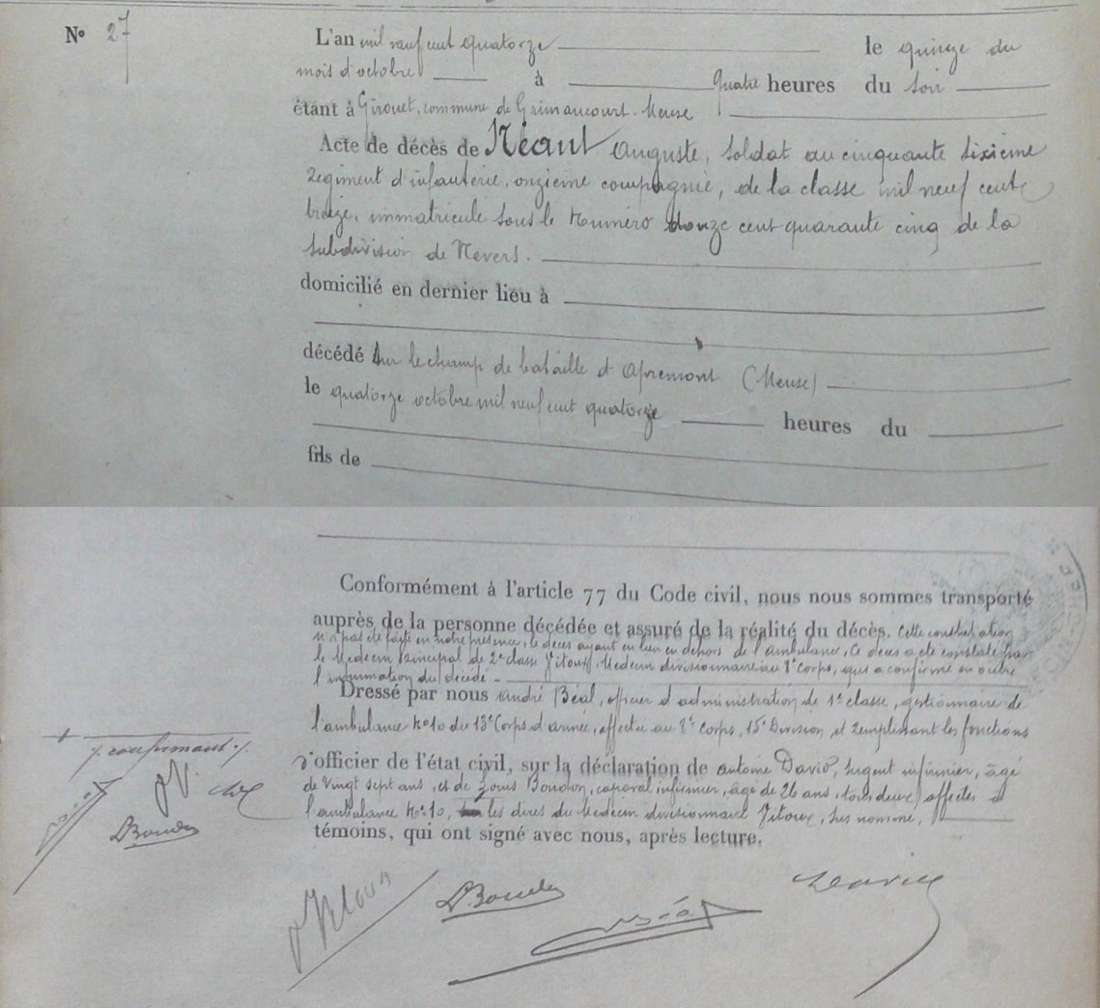 N° 27
L'an mil neuf cent quatorze le quinze du
mois d'octobre à quatre heures du soir
étant à Girouet, commune de Grimaucourt. Meuse
Acte de décès de Néant Auguste, soldat au cinquante sixième
Régiment d'infanterie, onzième compagnie, de la classe mil neuf cent
treize, immatriculé sous le Numéro douze cent quarante cinq de la
subdivision de Nevers.
domicilié en dernier lieu à
décédé sur le champ de bataille d'Apremont (Meuse)
le quatorze octobre mil neuf cent quatorze heures du
fils de
Conformément à l'article 77 du Code civil, nous nous sommes transporté
auprès de la personne décédée et assuré de la réalité du décès. Cette constatation
n'a pas été faite en notre présence, le décès ayant eu lieu en dehors de l'ambulance, Ce décès a été constaté par
le Médecin Principal de 2e classe Vitoux, Médecin divisionnaire au 8e Corps, qui a confirmé en outre
l'inhumation du décédé -
Dressé par nous André Béal, officier d'administration de 1e classe, gestionnaire de
l'ambulance No 10 du 13e Corps d'armée, affectée au 8e Corps, 15e Division, et remplissant les fonctions
d'officier de l'état civil, sur la déclaration de Antoine David, sergent infirmier, âgé
de vingt sept ans, et de Louis Boudon, caporal infirmier, âgé de 26 ans, tous deux affectés à
l'ambulance No 10, les dires du Médecin divisionnaire Vitoux, sus nommé,
témoins, qui ont signé avec nous, après lecture.
+ /. confirmant ./
Boudon
Vitoux Boudon Béal David